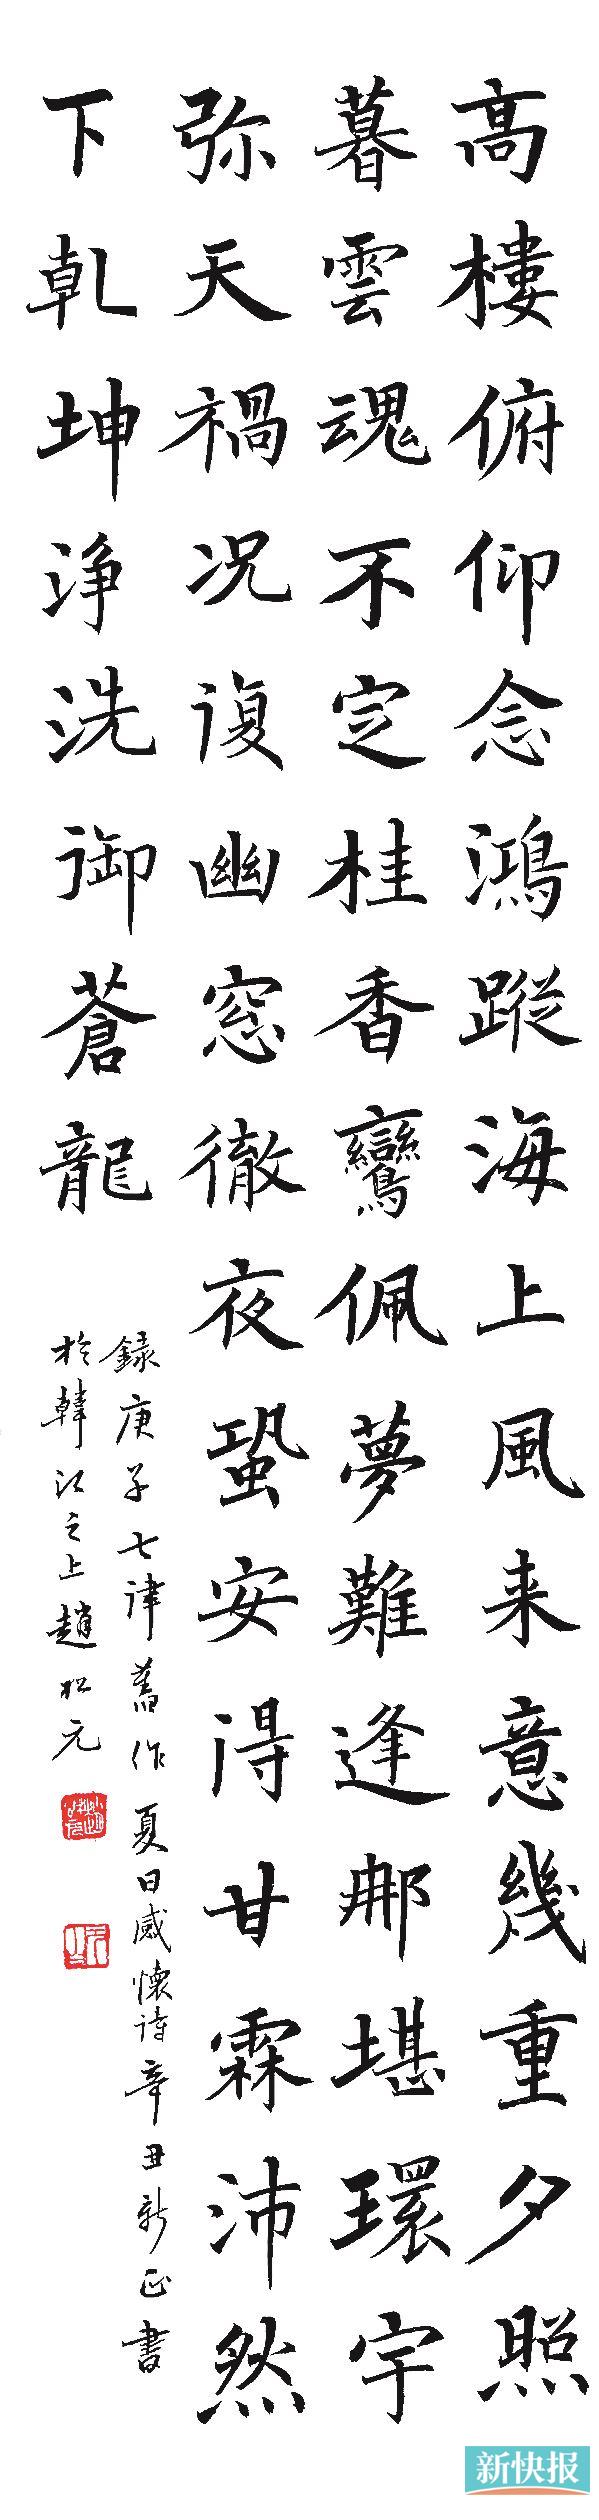 高樓俯仰念鴻蹤海上風来意幾重夕照
暮雲魂不定桂香鸞佩夢難逢那堪環宇
弥天禍况復幽窓徹夜蛩安得甘霖沛然
下乹坤浄洗御蒼龍
録庚子七律舊作夏日感懷诗辛丑新正書
於韓江之上趙松元
新快报